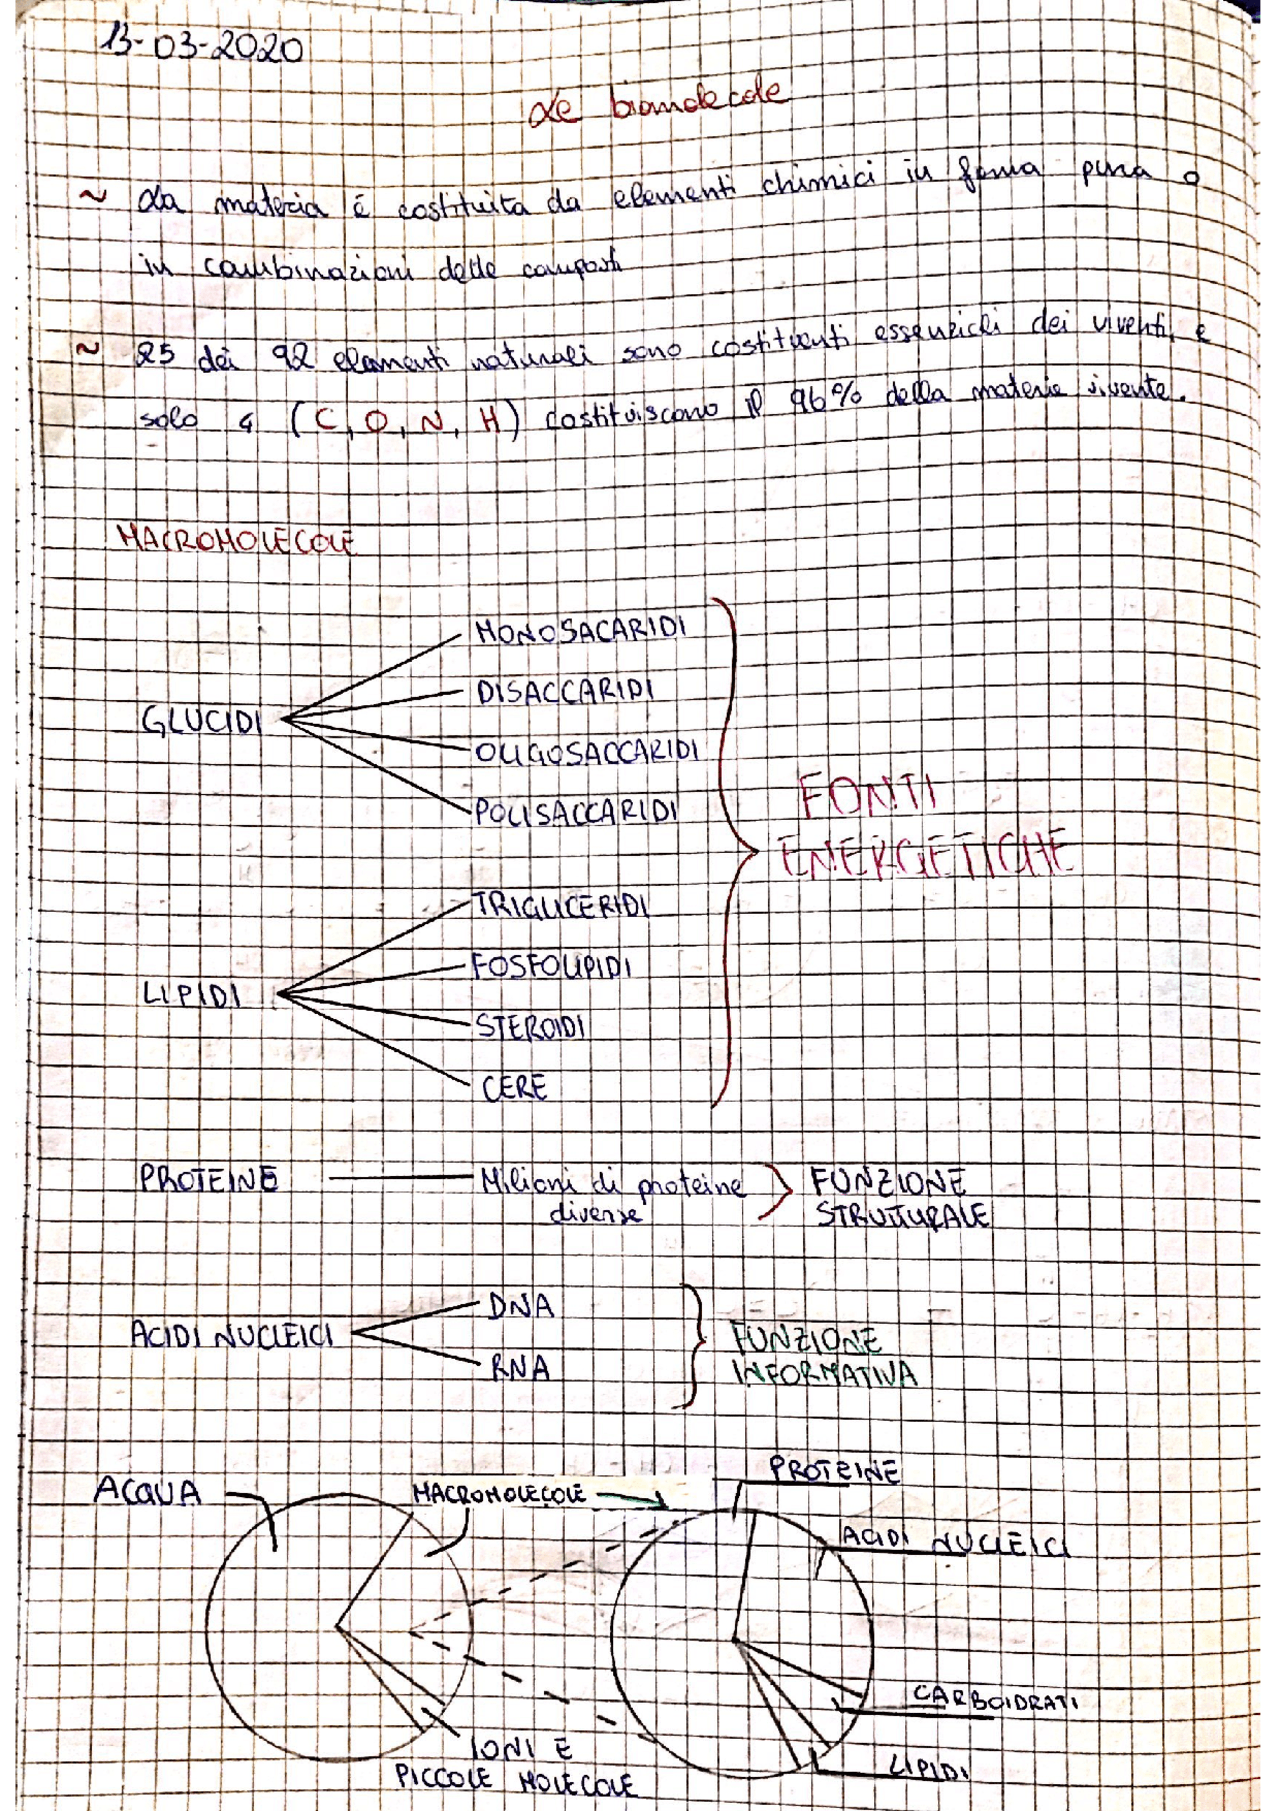 13-03-2020
Le biomolecole
~ La materia è costituita da elementi chimici in forma pura o
in combinazioni dette composti
~ 25 dei 92 elementi naturali sono costituenti essenziali dei viventi, e
solo 4 (C, O, N, H) costituiscono il 96% della materia vivente.
MACROMOLECOLE
MONOSACARIDI
DISACCARIDI
GLUCIDI
OLIGOSACCARIDI
POLISACCARIDI
FONTI
ENERGETICHE
TRIGLICERIDI
FOSFOLIPIDI
LIPIDI
STEROIDI
CERE
PROTEINE
Milioni di proteine
diverse
FUNZIONE
STRUTTURALE
ACIDI NUCLEICI
DNA
RNA
FUNZIONE
INFORMATIVA
ACQUA
MACROMOLECOLE
PROTEINE
ACIDI NUCLEICI
CARBOIDRATI
LIPIDI
IONI E
PICCOLE MOLECOLE